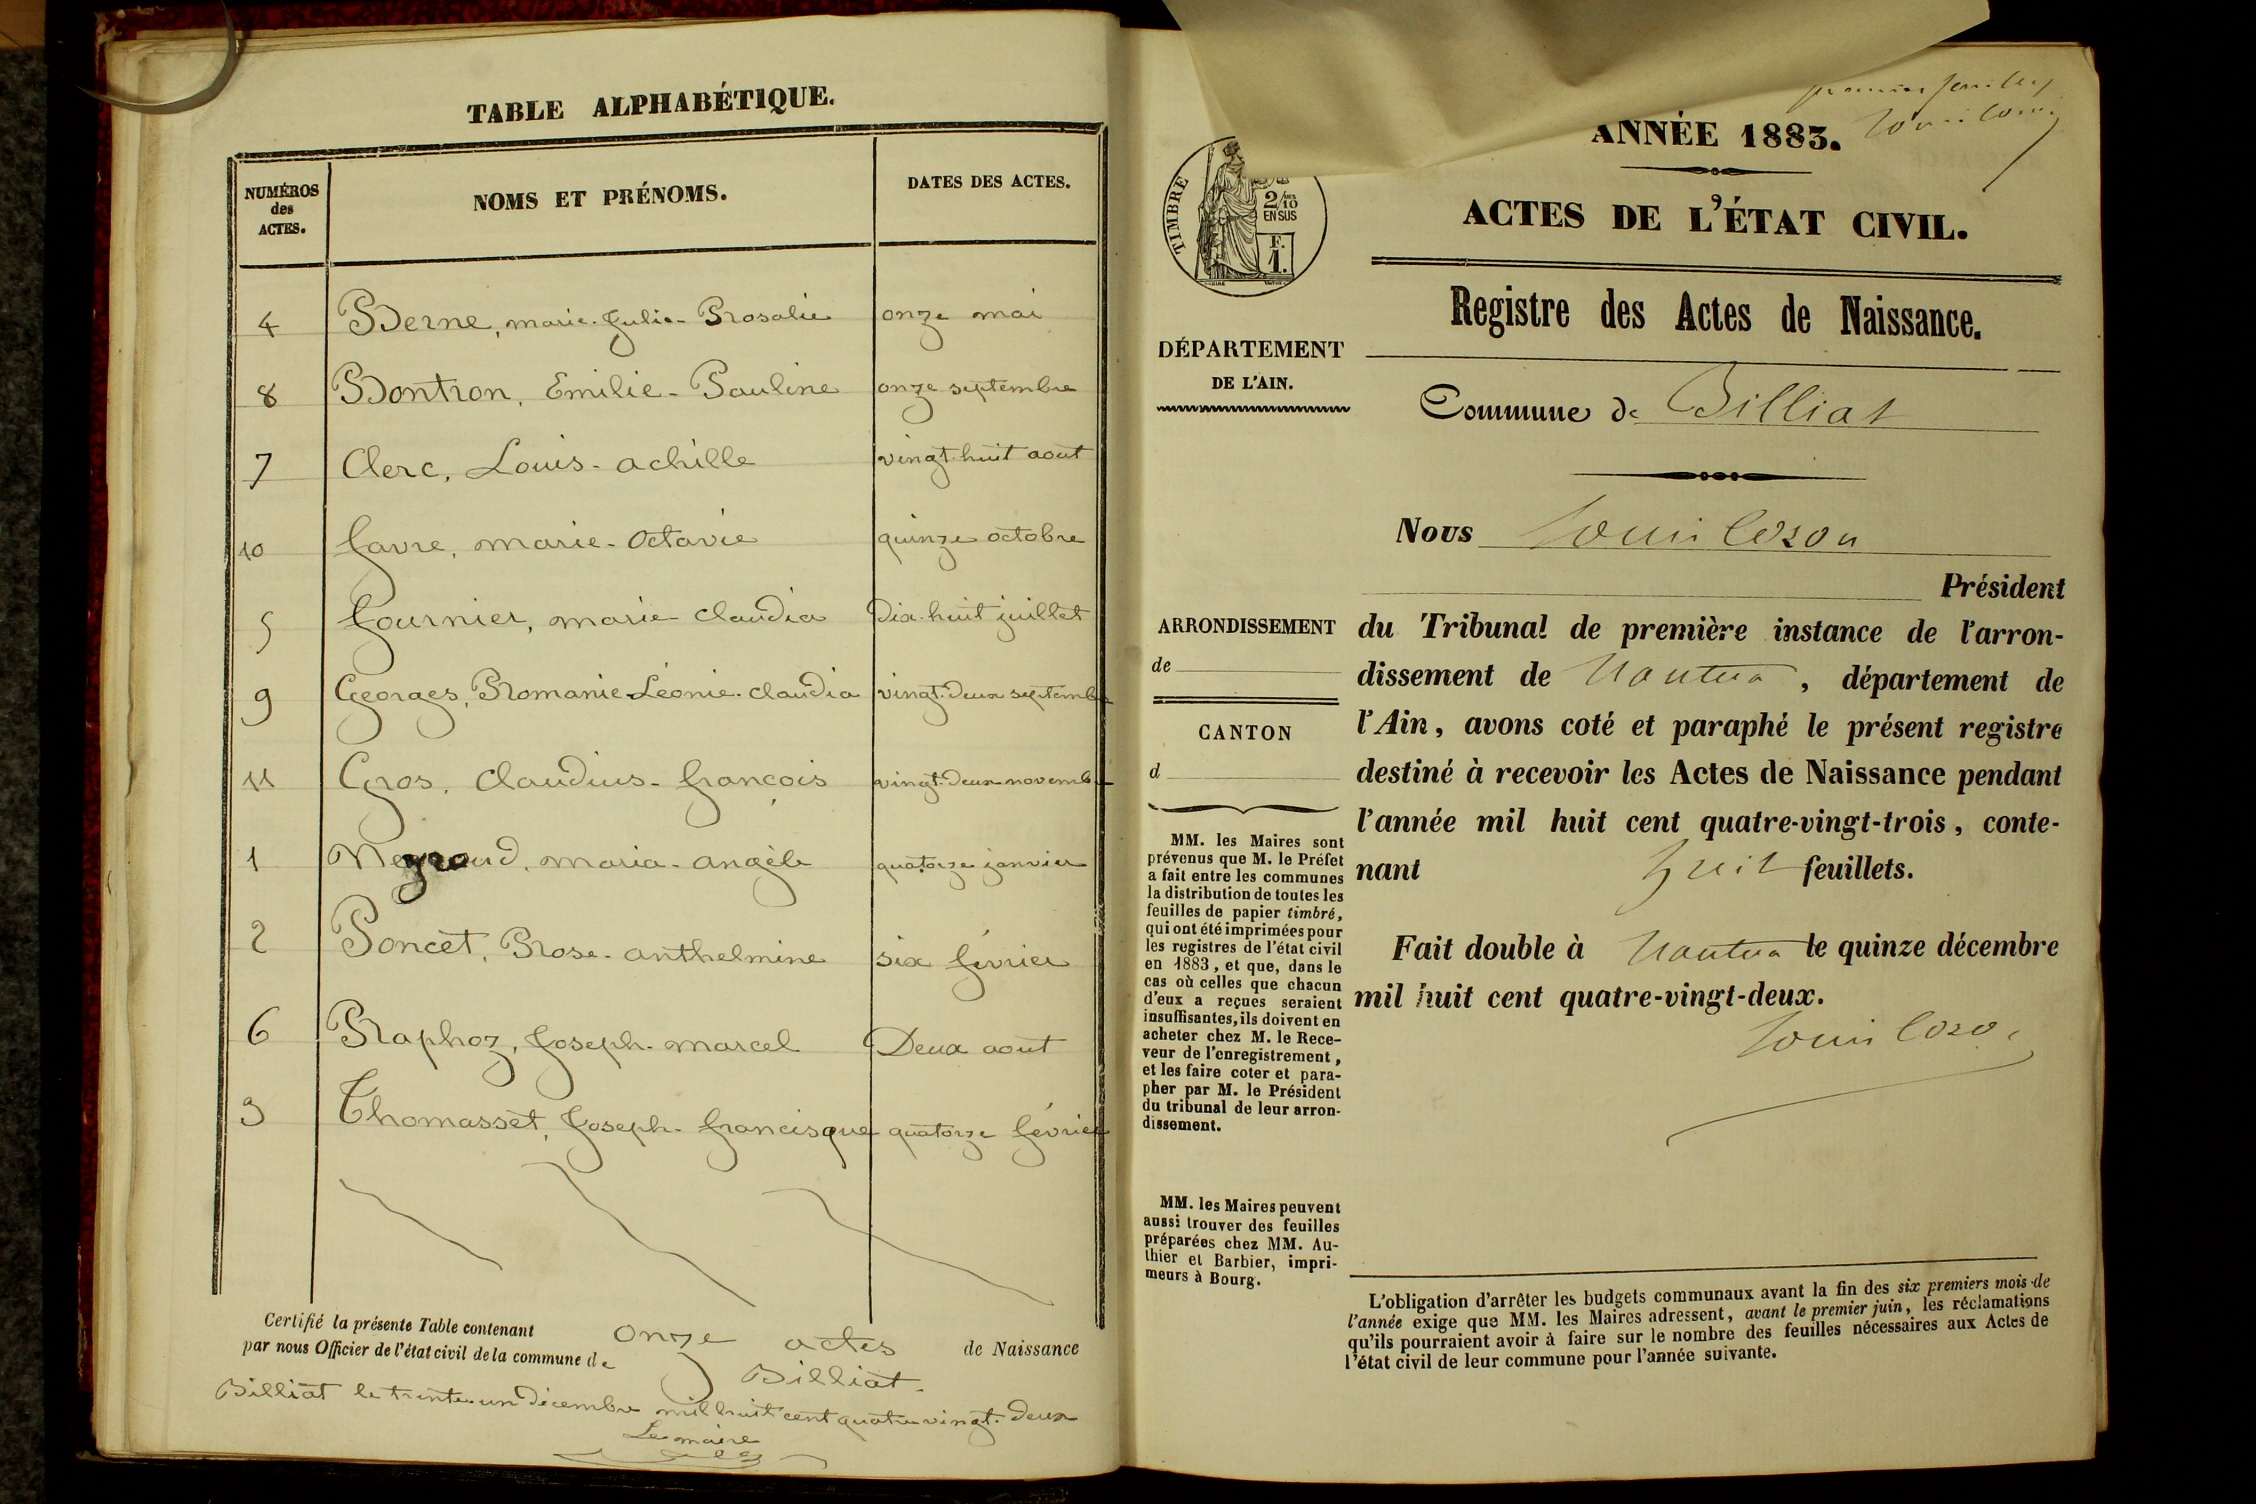 TABLE ALPHABÉTIQUE.
NUMÉROS
des
ACTES.
NOMS ET PRÉNOMS.
DATES DES ACTES.
4 Berne, marie-Julie-Rosalie onze mai
8 Bontron, Emilie-Pauline onze septembre
7 Clerc, Louis-achille vingt-huit aout
10 favre, marie-Octavie quinze octobre
5 fournier, marie claudia Dix-huit juillet
9 Georges, Romanie Léonie-claudia vingt-deux septembre
11 Gros, Claudius-françois vingt-deux novembre
1 Meyraud, maria-angèle quatorze janvier
2 Poncet, Rose-anthelmine six février
6 Raphoz, Joseph-marcel Deux aout
3 Thomasset, Joseph-francisque quatorze février
Certifié la présente Table contenant onze actes de Naissance
par nous Officier de l'état civil de la commune de Billiat.
Billiat le trente-un décembre mil huit cent quatre vingt-deux
Le maire
premier feuillet
ANNÉE 1883.
ACTES DE L'ÉTAT CIVIL.
TIMBRE
2/10
EN SUS
F.
1.
Registre des Actes de Naissance.
DÉPARTEMENT
DE L'AIN.
Commune de Billiat
Nous Louis Cozon
Président
du Tribunal de première instance de l'arron-
dissement de Nantua, département de
l'Ain, avons coté et paraphé le présent registre
destiné à recevoir les Actes de Naissance pendant
l'année mil huit cent quatre-vingt-trois, conte-
nant huit feuillets.
Fait double à Nantua le quinze décembre
mil huit cent quatre-vingt-deux.
Louis Cozon
ARRONDISSEMENT
de
CANTON
d
MM. les Maires sont
prévenus que M. le Préfet
a fait entre les communes
la distribution de toutes les
feuilles de papier timbré,
qui ont été imprimées pour
les registres de l'état civil
en 1883, et que, dans le
cas où celles que chacun
d'eux a reçues seraient
insuffisantes, ils doivent en
acheter chez M. le Rece-
veur de l'enregistrement,
et les faire coter et para-
pher par M. le Président
du tribunal de leur arron-
dissement.
MM. les Maires peuvent
aussi trouver des feuilles
préparées chez MM. Au-
thier et Barbier, impri-
meurs à Bourg.
L'obligation d'arrêter les budgets communaux avant la fin des six premiers mois de
l'année exige que MM. les Maires adressent, avant le premier juin, les réclamations
qu'ils pourraient avoir à faire sur le nombre des feuilles nécessaires aux Actes de
l'état civil de leur commune pour l'année suivante.